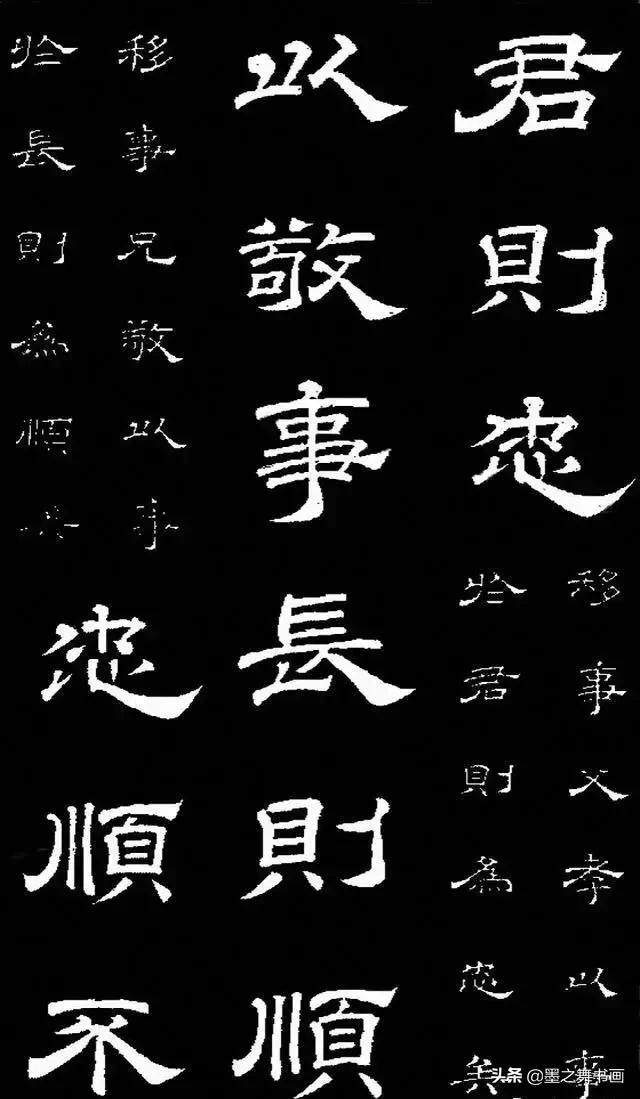 君則忠
移事父孝以事
於君則為忠矣
以敬事長則順
移事兄敬以事
於長則為順矣
忠順不
头条 @墨之舞书画